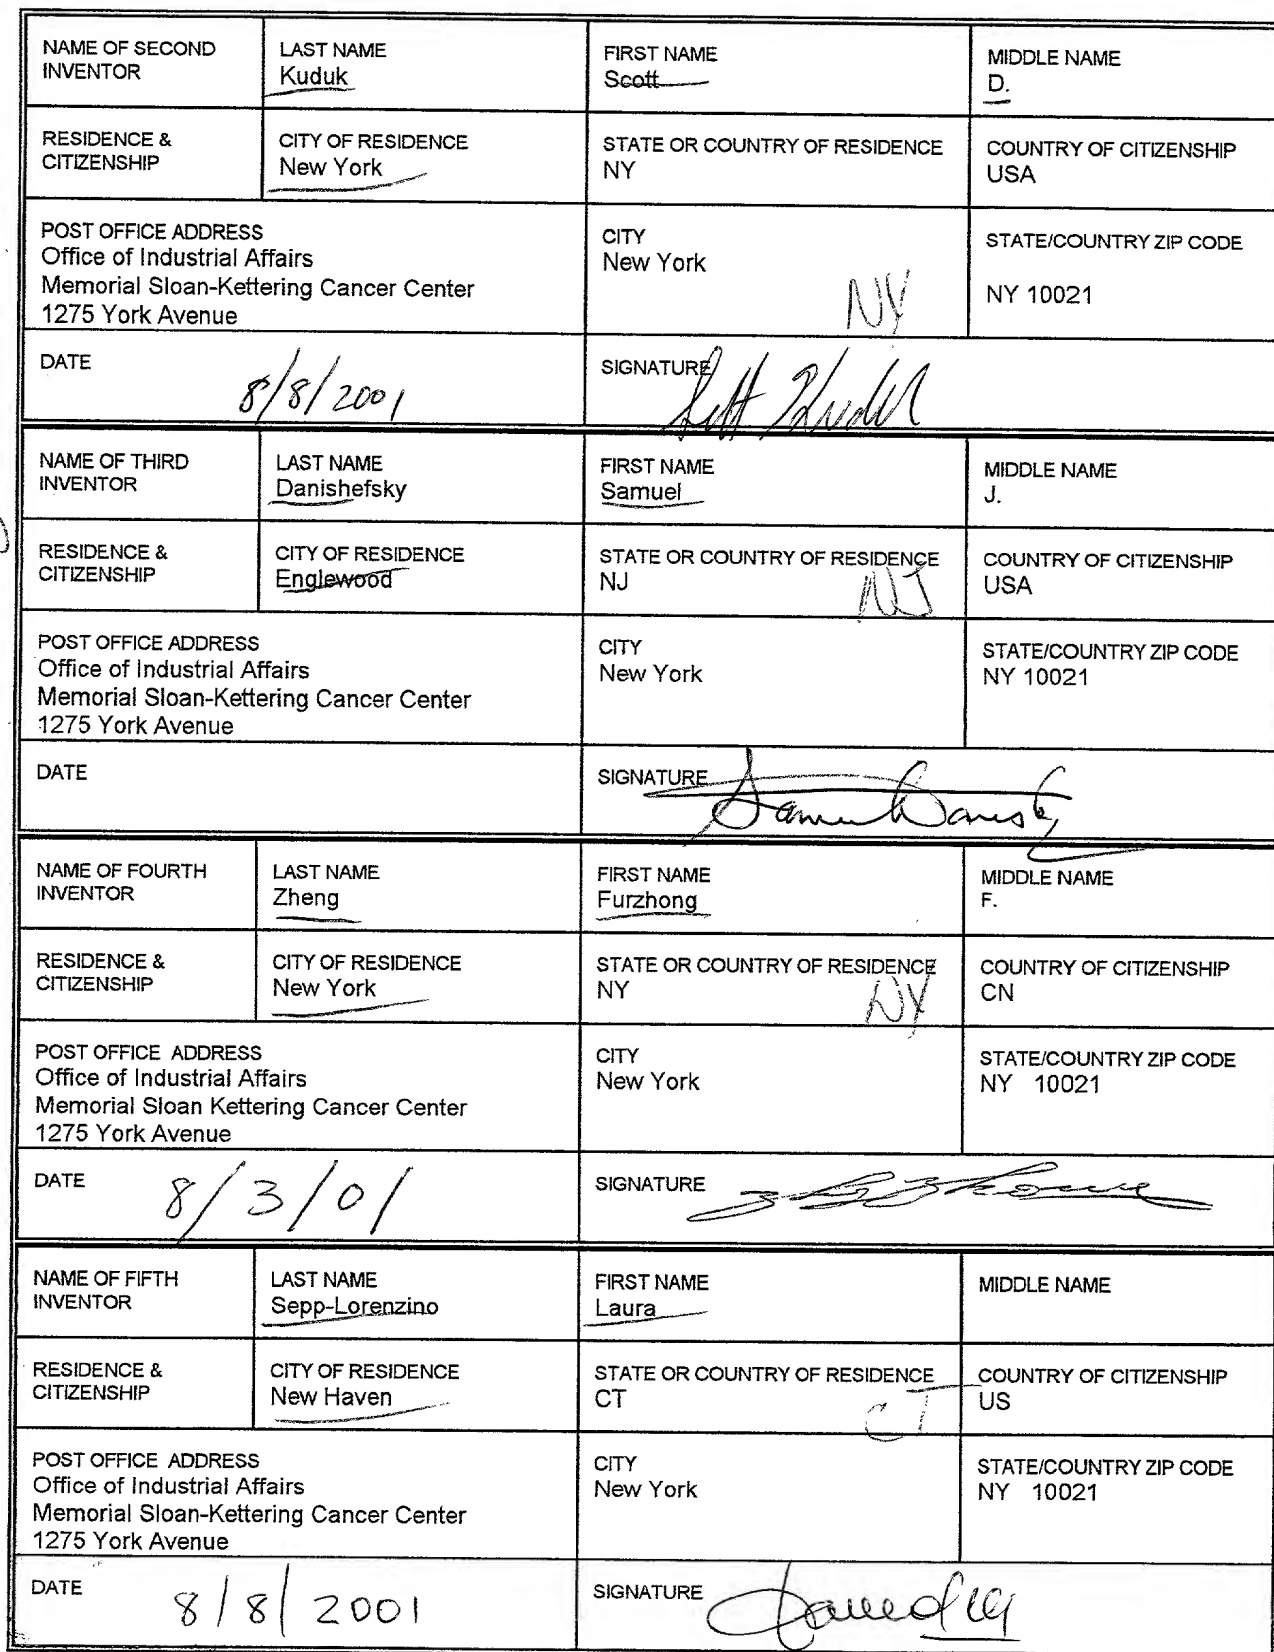 NAME OF SECOND INVENTOR
LAST NAME
Kuduk
FIRST NAME
Scott
MIDDLE NAME
D.
RESIDENCE & CITIZENSHIP
CITY OF RESIDENCE
New York
STATE OR COUNTRY OF RESIDENCE
NY
COUNTRY OF CITIZENSHIP
USA
POST OFFICE ADDRESS
Office of Industrial Affairs
Memorial Sloan-Kettering Cancer Center
1275 York Avenue
CITY
New York
NY
STATE/COUNTRY ZIP CODE
NY 10021
DATE
8/8/2001
SIGNATURE
NAME OF THIRD INVENTOR
LAST NAME
Danishefsky
FIRST NAME
Samuel
MIDDLE NAME
J.
RESIDENCE & CITIZENSHIP
CITY OF RESIDENCE
Englewood
STATE OR COUNTRY OF RESIDENCE
NJ
NJ
COUNTRY OF CITIZENSHIP
USA
POST OFFICE ADDRESS
Office of Industrial Affairs
Memorial Sloan-Kettering Cancer Center
1275 York Avenue
CITY
New York
STATE/COUNTRY ZIP CODE
NY 10021
DATE
SIGNATURE
NAME OF FOURTH INVENTOR
LAST NAME
Zheng
FIRST NAME
Furzhong
MIDDLE NAME
F.
RESIDENCE & CITIZENSHIP
CITY OF RESIDENCE
New York
STATE OR COUNTRY OF RESIDENCE
NY
NY
COUNTRY OF CITIZENSHIP
CN
POST OFFICE ADDRESS
Office of Industrial Affairs
Memorial Sloan Kettering Cancer Center
1275 York Avenue
CITY
New York
STATE/COUNTRY ZIP CODE
NY 10021
DATE
8/3/01
SIGNATURE
NAME OF FIFTH INVENTOR
LAST NAME
Sepp-Lorenzino
FIRST NAME
Laura
MIDDLE NAME
RESIDENCE & CITIZENSHIP
CITY OF RESIDENCE
New Haven
STATE OR COUNTRY OF RESIDENCE
CT
CT
COUNTRY OF CITIZENSHIP
US
POST OFFICE ADDRESS
Office of Industrial Affairs
Memorial Sloan-Kettering Cancer Center
1275 York Avenue
CITY
New York
STATE/COUNTRY ZIP CODE
NY 10021
DATE
8/8/2001
SIGNATURE